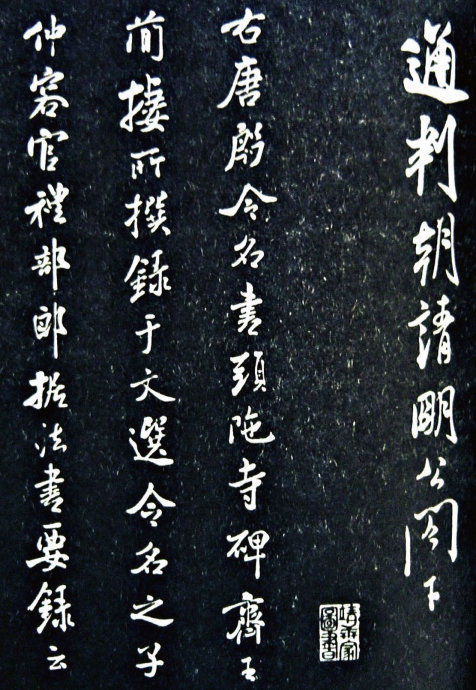 通判朝請明公閣下
右唐殷令名書頭陁寺碑齊王
簡棲所撰錄于文選令名之子
仲容官禮部郎据法書要錄云